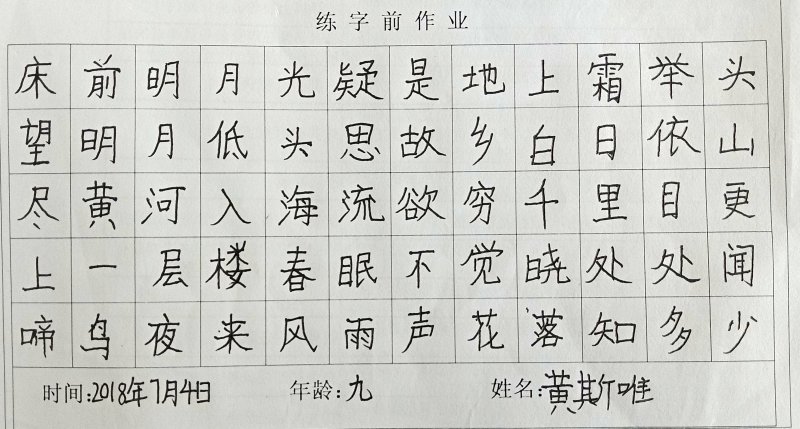 练字前作业
床前明月光疑是地上霜举头
望明月低头思故乡白日依山
尽黄河入海流欲穷千里目更
上一层楼春眠不觉晓处处闻
啼鸟夜来风雨声花落知多少
时间:2018年7月4日 年龄:九 姓名:黄斯唯